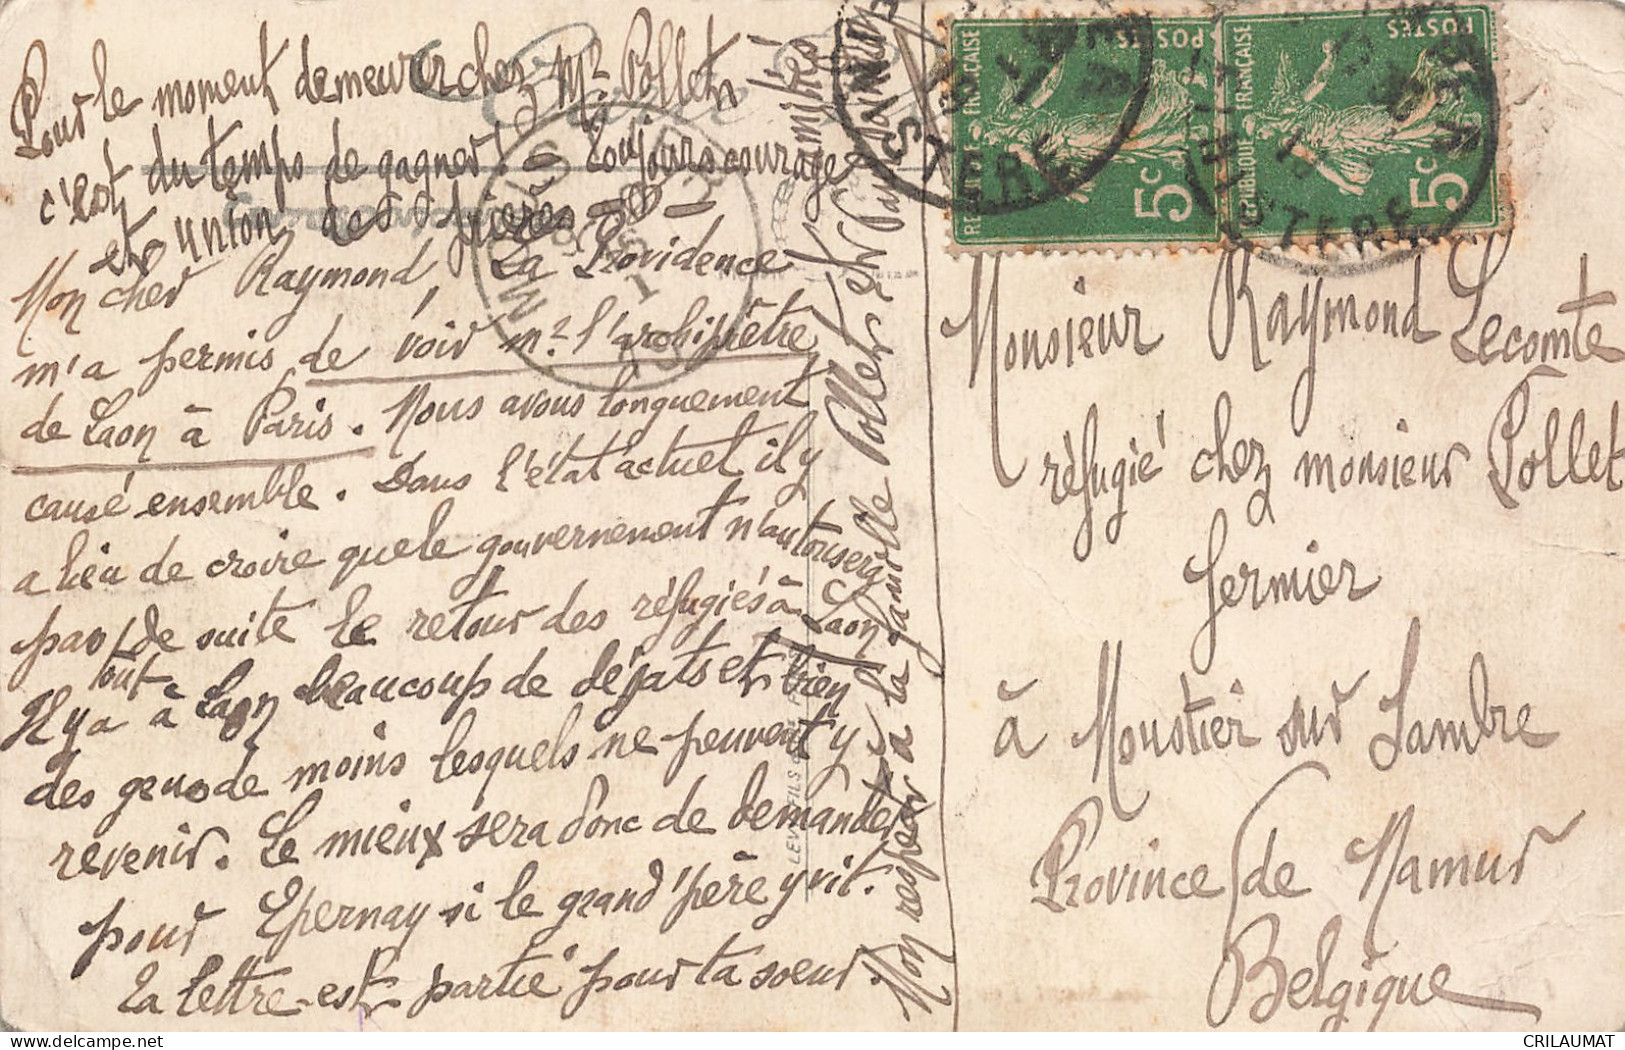 Pour le moment demeurer chez Mr Pollet
c'est du temps de gagner. Toujours courage
et union des prières
Mon cher Raymond, La Providence
m'a permis de voir mr l'archiprêtre
de Laon à Paris. Nous avons longuement
causé ensemble. Dans l'état actuel il y
a lieu de croire que le gouvernement n'autorisera
pas de suite le retour des réfugiés à Laon
tout
Il y a à Laon beaucoup de dégats et bien
des gens de moins lesquels ne peuvent y
revenir. Le mieux sera donc de demander
pour Epernay si le grand'père y vit.
La lettre est partie pour ta soeur.
Mon respect à la famille Pollet et
LEVY FILS
POSTES
REPUBLIQUE FRANÇAISE
5c
POSTES
REPUBLIQUE FRANÇAISE
5c
Monsieur Raymond Lecomte
réfugié chez monsieur Pollet
fermier
à Moustier sur Sambre
Province de Namur
Belgique
CRILAUMAT